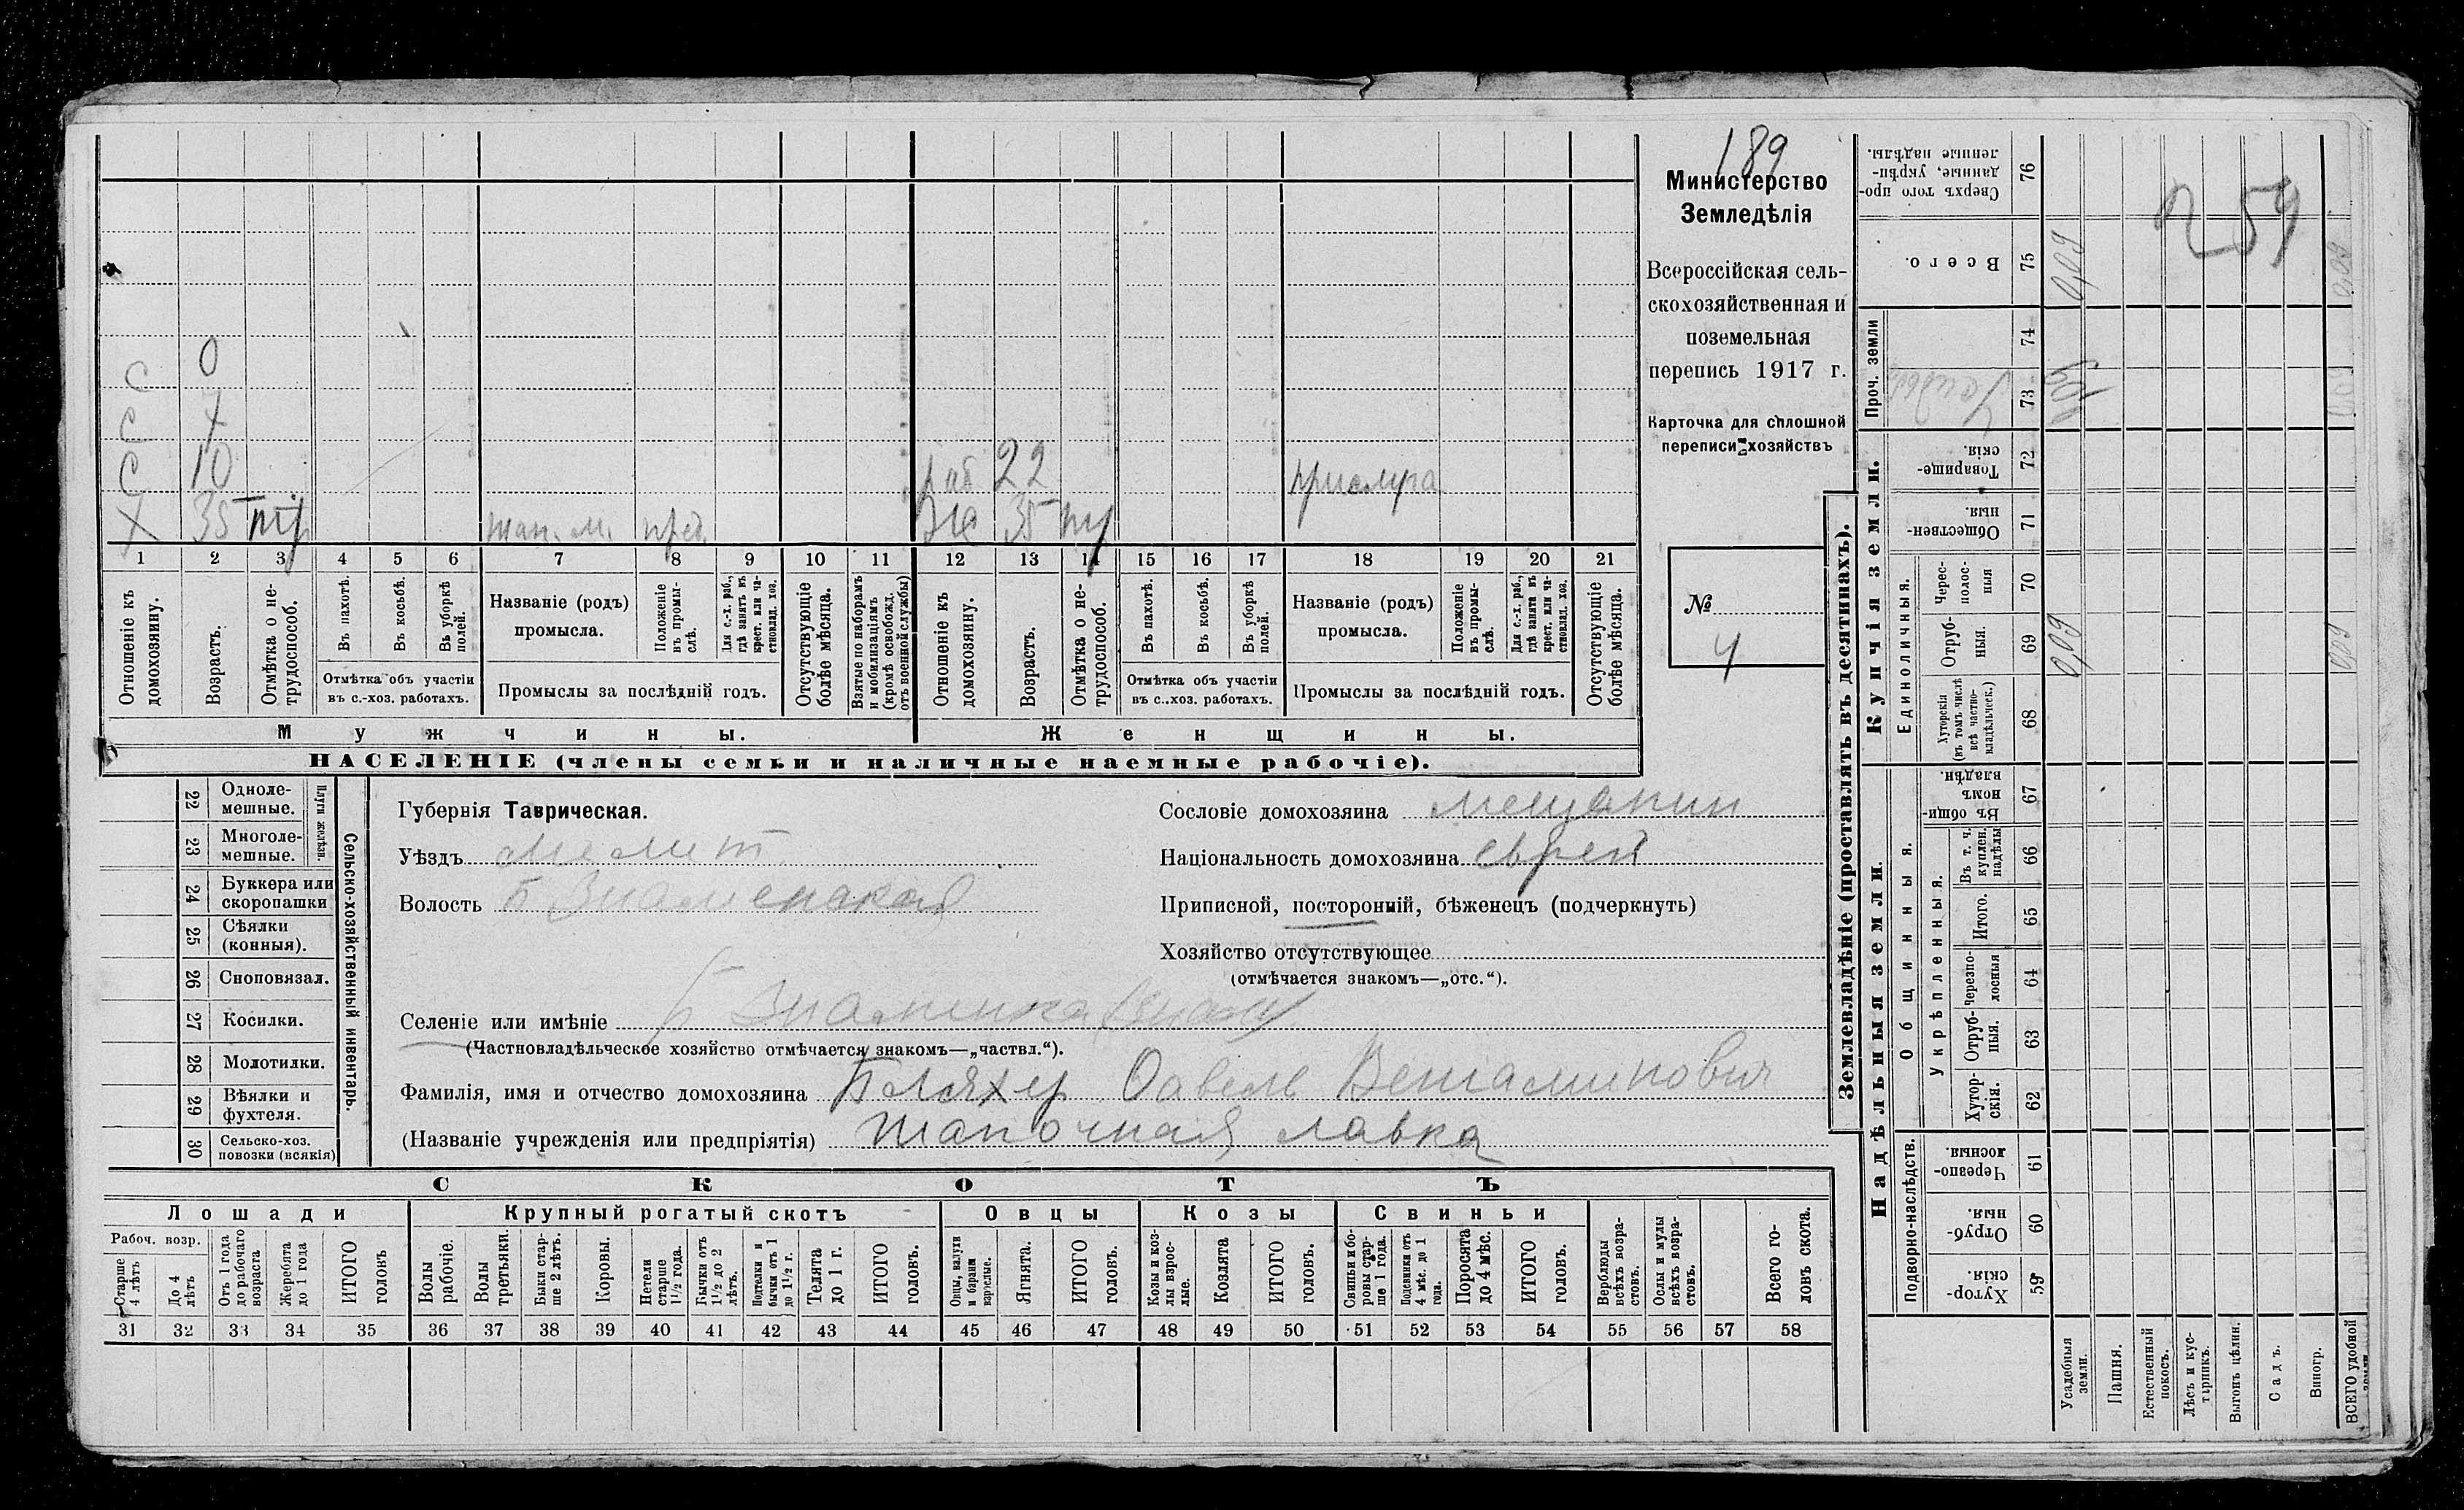 189
Министерство
Земледѣлія
Всероссійская сель-
скохозяйственная и
поземельная
перепись 1917 г.
Карточка для сплошной
переписи хозяйствъ
№
4
С 0
С
С 10 раб 22 прислуга
Х 35 тр шап. м. пред. жа 35 тр
1 2 3 4 5 6 7 8 9 10 11 12 13 14 15 16 17 18 19 20 21
Отношеніе къ домохозяину.
Возрастъ.
Отмѣтка о не-трудоспособ.
Въ пахотѣ.
Въ косьбѣ.
Въ уборкѣ полей.
Отмѣтка объ участіи
въ с.-хоз. работахъ.
Названіе (родъ)
промысла.
Положеніе въ промы-слѣ.
Для с.-х. раб., гдѣ занятъ въ крест. или ча-стновлад. хоз.
Промыслы за послѣдній годъ.
Отсутствующіе болѣе мѣсяца.
Взятые по наборамъ и мобилизаціямъ (кромѣ освобожд. отъ военной службы)
Отношеніе къ домохозяину.
Возрастъ.
Отмѣтка о не-трудоспособ.
Въ пахотѣ.
Въ косьбѣ.
Въ уборкѣ полей.
Отмѣтка объ участіи
въ с..хоз. работахъ.
Названіе (родъ)
промысла.
Положеніе въ промы-слѣ.
Для с.-х. раб., гдѣ занята въ крест. или ча-стновлад. хоз.
Промыслы за послѣдній годъ.
Отсутствующіе болѣе мѣсяца.
Мужчины.
Женщины.
НАСЕЛЕНІЕ (члены семьи и наличные наемные рабочіе).
Сельско-хозяйственный инвентарь.
Плуги желѣзн.
22 Одноле-мешные.
23 Многоле-мешные.
24 Буккера или скоропашки
25 Сѣялки (конныя).
26 Сноповязал.
27 Косилки.
28 Молотилки.
29 Вѣялки и фухтеля.
30 Сельско-хоз. повозки (всякія)
Губернія Таврическая.
Уѣздъ Мелит
Волость Б Знаменская
Сословіе домохозяина мещанин
Національность домохозяина еврей
Приписной, посторонній, бѣженецъ (подчеркнуть)
Хозяйство отсутствующее
(отмѣчается знакомъ—„отс.“).
Селеніе или имѣніе Б Знаменка
(Частновладѣльческое хозяйство отмѣчается знакомъ—„частвл.“).
Фамилія, имя и отчество домохозяина Бляхер Савель Вениаминович
(Названіе учрежденія или предпріятія) Шапочная лавка
СКОТЪ
Лошади
Крупный рогатый скотъ
Овцы
Козы
Свиньи
Рабоч. возр.
Старше 4 лѣтъ
До 4 лѣтъ
Отъ 1 года до рабочаго возраста
Жеребята до 1 года
ИТОГО головъ
Волы рабочіе.
Волы третьяки.
Быки стар-ше 2 лѣтъ.
Коровы.
Нетели старше 1½ года.
Бычки отъ 1½ до 2 лѣтъ.
Подтелки и бычки отъ 1 до 1½ г.
Телята до 1 г.
ИТОГО головъ.
Овцы, валухи и бараны взрослые.
Ягнята.
ИТОГО головъ.
Козы и коз-лы взрос-лые.
Козлята
ИТОГО головъ.
Свиньи и бо-ровы стар-ше 1 года.
Подсвинки отъ 4 мѣс. до 1 года.
Поросята до 4 мѣс.
ИТОГО головъ.
Верблюды всѣхъ возра-стовъ.
Ослы и мулы всѣхъ возра-стовъ.
Всего го-ловъ скота.
31 32 33 34 35 36 37 38 39 40 41 42 43 44 45 46 47 48 49 50 51 52 53 54 55 56 57 58
Землевладѣніе (проставлять въ десятинахъ).
Надѣльныя земли.
Купчія земли.
Проч. земли
Подворно-наслѣдств.
Общинныя.
Укрѣпленныя.
Единоличныя.
Сверхъ того про-данные, укрѣп-ленные надѣлы. 76
Всего. 75 0,09
74
73
Товарище-скія. 72
Обществен-ныя. 71
Черес-полос-ныя 70
Отруб-ныя. 69 0,09
Хуторскія (въ томъ числѣ всѣ частно-владѣльческ.) 68
Въ общин-номъ владѣн. 67
Въ т. ч. куплен. надѣлы 66
Итого. 65
Черезпо-лосныя 64
Отруб-ныя. 63
Хутор-скія. 62
Черезпо-лосныя. 61
Отруб-ныя. 60
Хутор-скія. 59
Усадебныя земли.
Пашня.
Естественный покосъ.
Лѣсъ и кус-тарникъ.
Выгонъ цѣлин.
Садъ.
Виногр.
ВСЕГО удобной
0,09
0,09
59